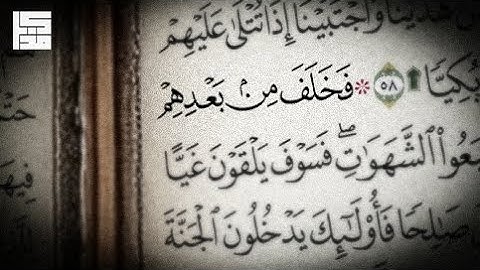 هَدَيْنَا وَاجْتَبَيْنَا إِذَا تُتْلَىٰ عَلَيْهِمْ
بُكِيًّا ۩ ٥٨ ۞ فَخَلَفَ مِنۢ بَعْدِهِمْ
الشَّهَوَٰتِ ۖ فَسَوْفَ يَلْقَوْنَ غَيًّا
صَٰلِحًا فَأُو۟لَٰٓئِكَ يَدْخُلُونَ الْجَنَّةَ